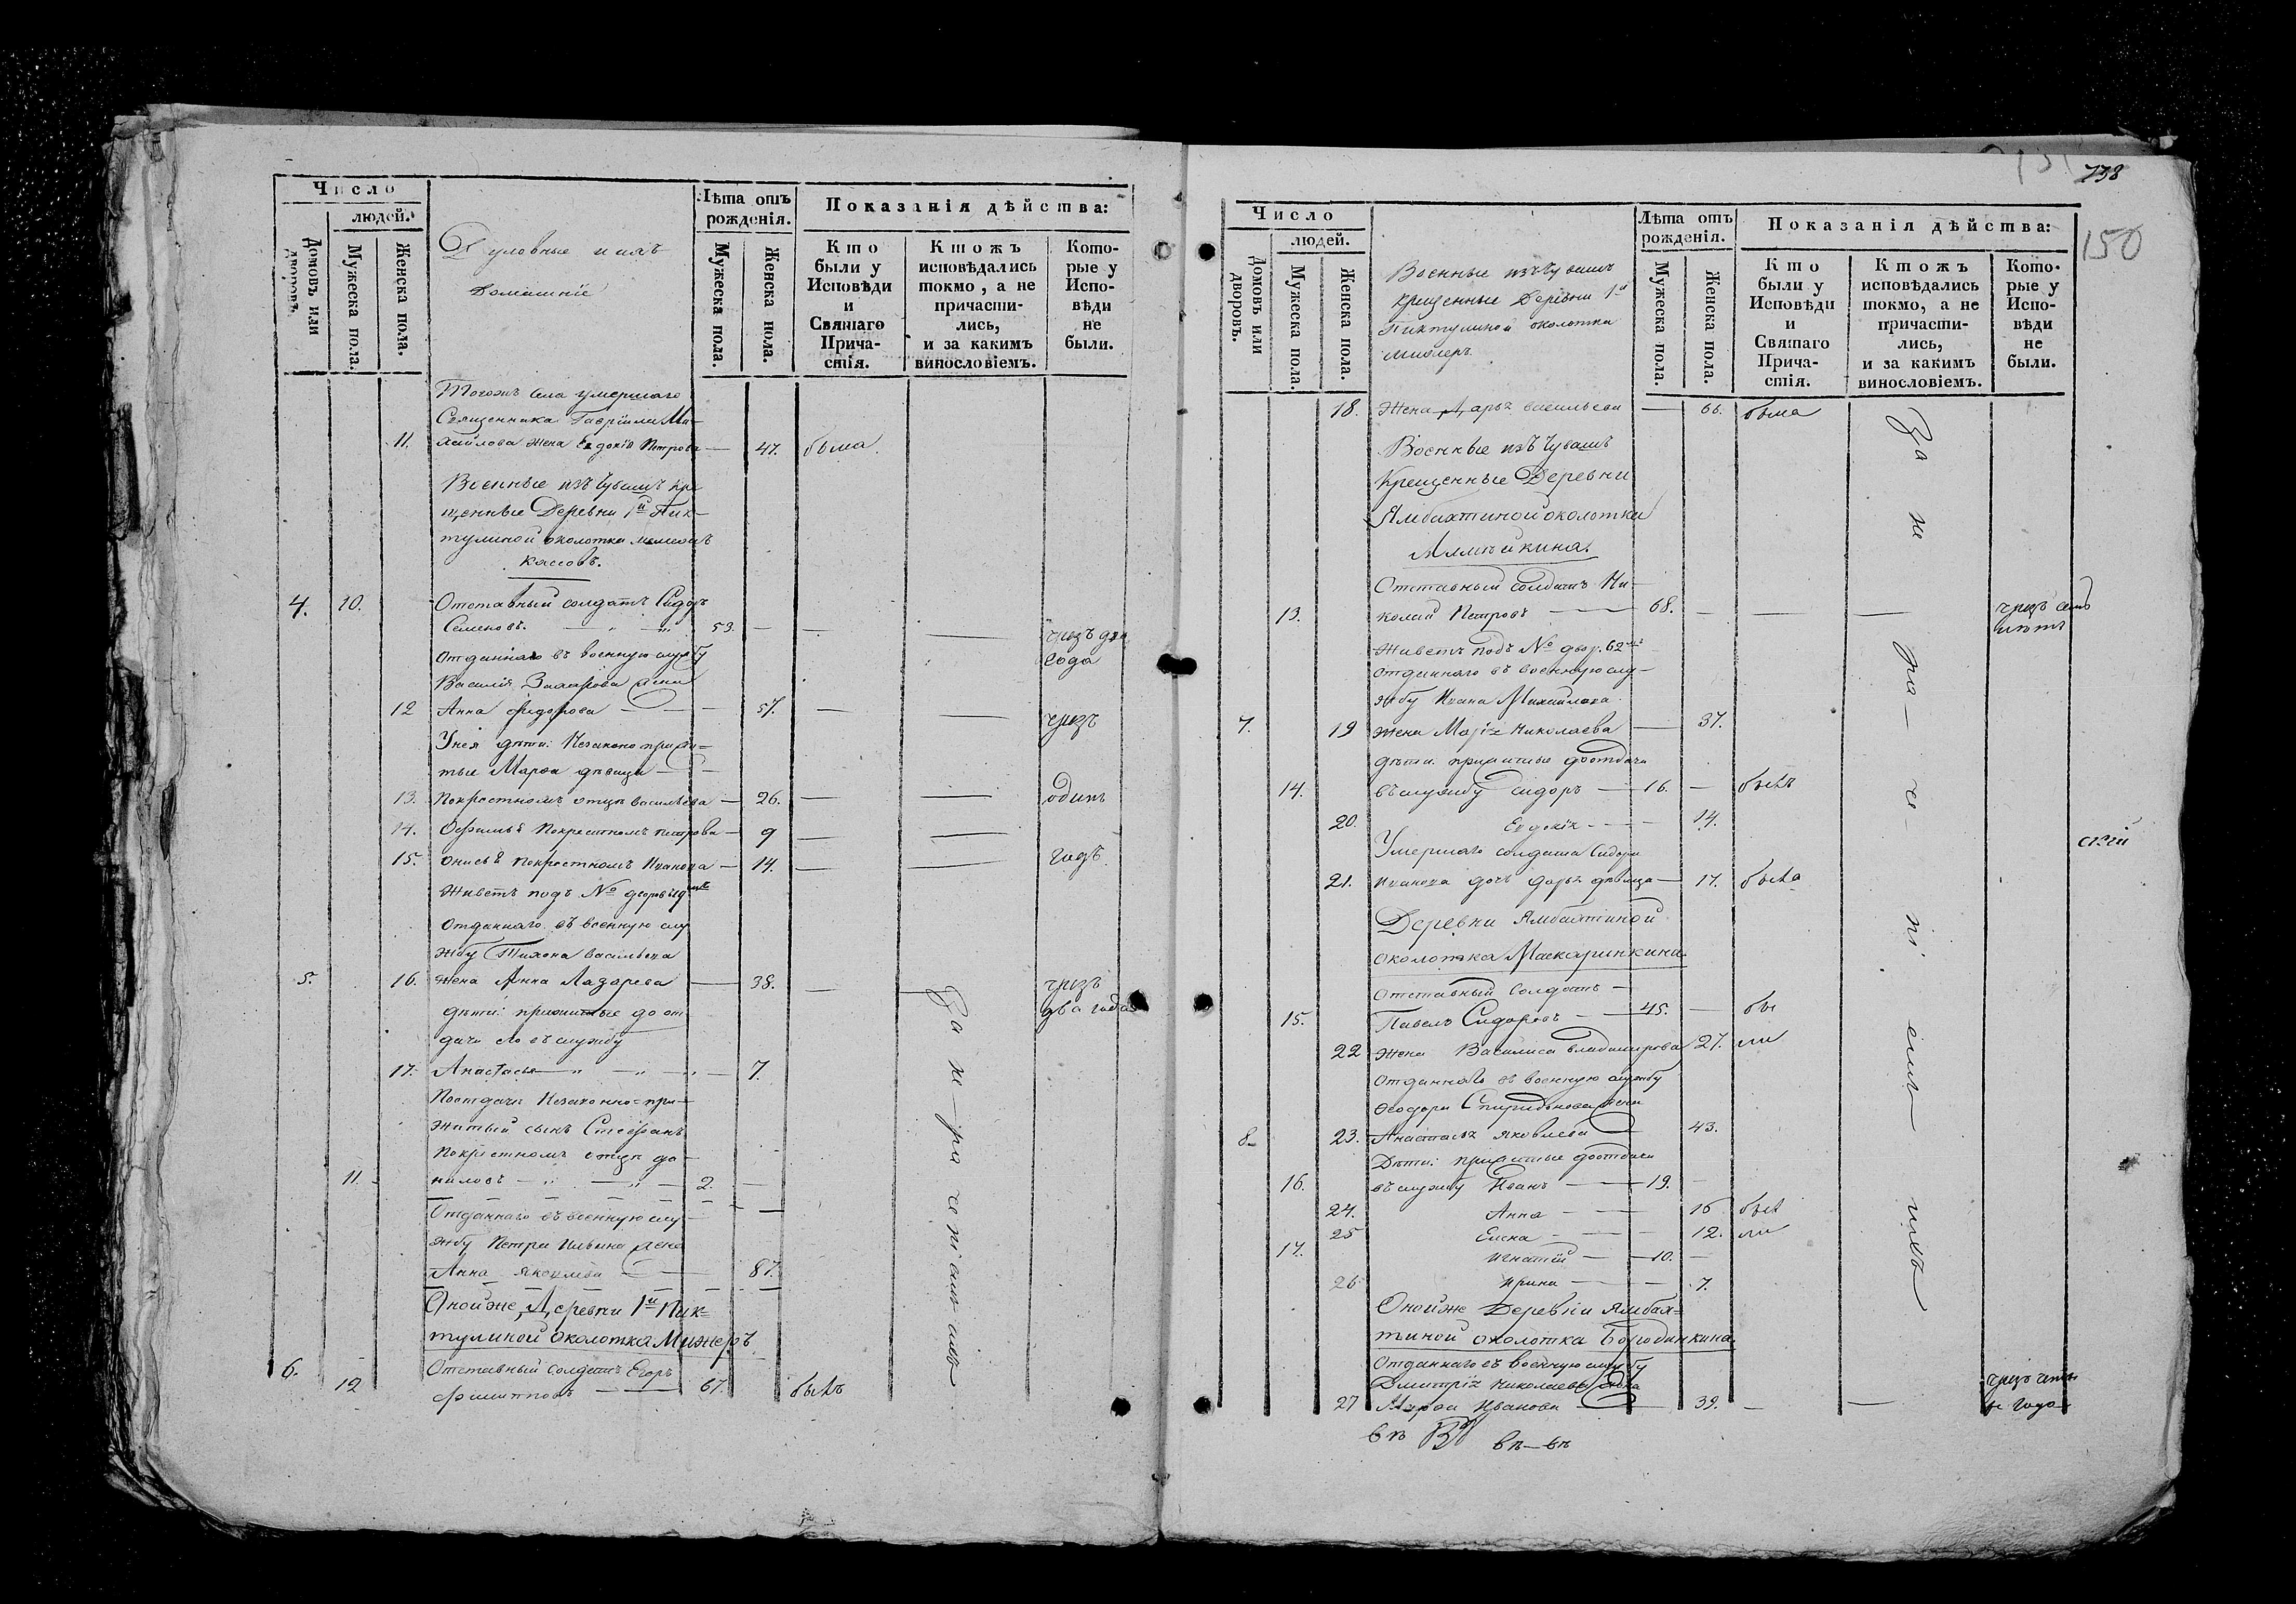 Число
людей.
Домовъ или дворовъ.
Мужеска пола.
Женска пола.
Духовные и ихъ
домашніе
Лѣта отъ рожденія.
Мужеска пола.
Женска пола.
Показанія дѣйства:
Кто были у Исповѣди и Святаго Прича-стія.
Ктожъ исповѣдались токмо, а не причасти-лись, и за какимъ винословіемъ.
Кото-рые у Испо-вѣди не были.
Тогожъ села умершаго
Священника Гавріила Ми-
11. хайлова жена Евдокія Петрова — 47. была.
Военные изъ Чувашъ кре
щенные Деревни 1й Пик-
тулиной околотка
кассовъ.
4. 10. Отставный солдатъ Сидоръ
Семеновъ. 53. — — — чрезъ два
Отданнаго въ военную службу года
Василія Захарова жена
12 Анна Федорова — 57. — — чрезъ
У нея дѣти: Незаконно прижи-
тые Марѳа дѣвица —
13. По крестномъ отцѣ Васильева — 26. — — одинъ
14. Ефимья по крестномъ Петрова — 9 — —
15. Онисья по крестномъ Иванова — 14. — — годъ.
Живетъ подъ №
Отданнаго въ военную слу
жбу Тихона Васильева
5. 16. жена Анна Лазарева — 38. — — чрезъ
дѣти: прижитые до от два года
дачи его въ службу
17. Анастасья — 7.
По отдачи Незаконно-при-
житый сынъ Стефанъ
По крестномъ отцѣ Да-
11. ниловъ — 2. —
Отданнаго въ военную слу-
жбу Петра Ильина жена
Анна Яковлева — 87.
Оной же Деревни 1й Пик-
тулиной околотка Мижеръ
6. Отставный солдатъ Егоръ
12 Филипповъ — 67. былъ
За не-ра че ні емъ
738
150
Число
людей.
Домовъ или дворовъ.
Мужеска пола.
Женска пола.
Военные изъ Чувашъ
крещенные Деревни 1й
Пиктулиной околотка
Мижеръ
Лѣта отъ рожденія.
Мужеска пола.
Женска пола.
Показанія дѣйства:
Кто были у Исповѣди и Святаго Прича-стія.
Ктожъ исповѣдались токмо, а не причасти-лись, и за какимъ винословіемъ.
Кото-рые у Испо-вѣди не были.
18. Жена Дарья Васильева — 66. была
Военные изъ Чувашъ
Крещенные Деревни
Ямбахтиной околотка
Отставный солдатъ Ни-
13. колай Петровъ — 68. — — — чрезъ семь
лѣтъ
Живетъ подъ № двор. 62мъ
Отданнаго въ военную слу-
жбу Ивана Михайлова
7. 19 жена Марія Николаева — 37.
дѣти: прижитые до отдачи
14. въ службу Сидоръ — 16. — былъ
20. Евдокія — 14.
Умершаго солдата Сидора
21. Иванова дочь Дарья дѣвица — 17. была
Деревни Ямбахтиной
околотка Маскаринкина.
Отставный солдатъ —
15. Павелъ Сидоровъ — 45. — бы
22 Жена Василиса Владимирова 27. ли
Отданнаго въ военную службу
Ѳеодора Спиридонова жена
8. 23. Анастасья Яковлева — 43.
Дѣти: прижитые до отдачи
16. въ службу Иванъ — 19. —
24. Анна — 16 бы
25 Елена — 12. ли
17. Игнатій — 10. —
26 Ирина — 7.
Оной же Деревни Ямбах=
тиной околотка Бородинкина.
Отданнаго въ военную службу
Дмитрія Николаева жена чрезъ
27 Марѳа Иванова — 39. — — года
За не ра- че- ні емъ